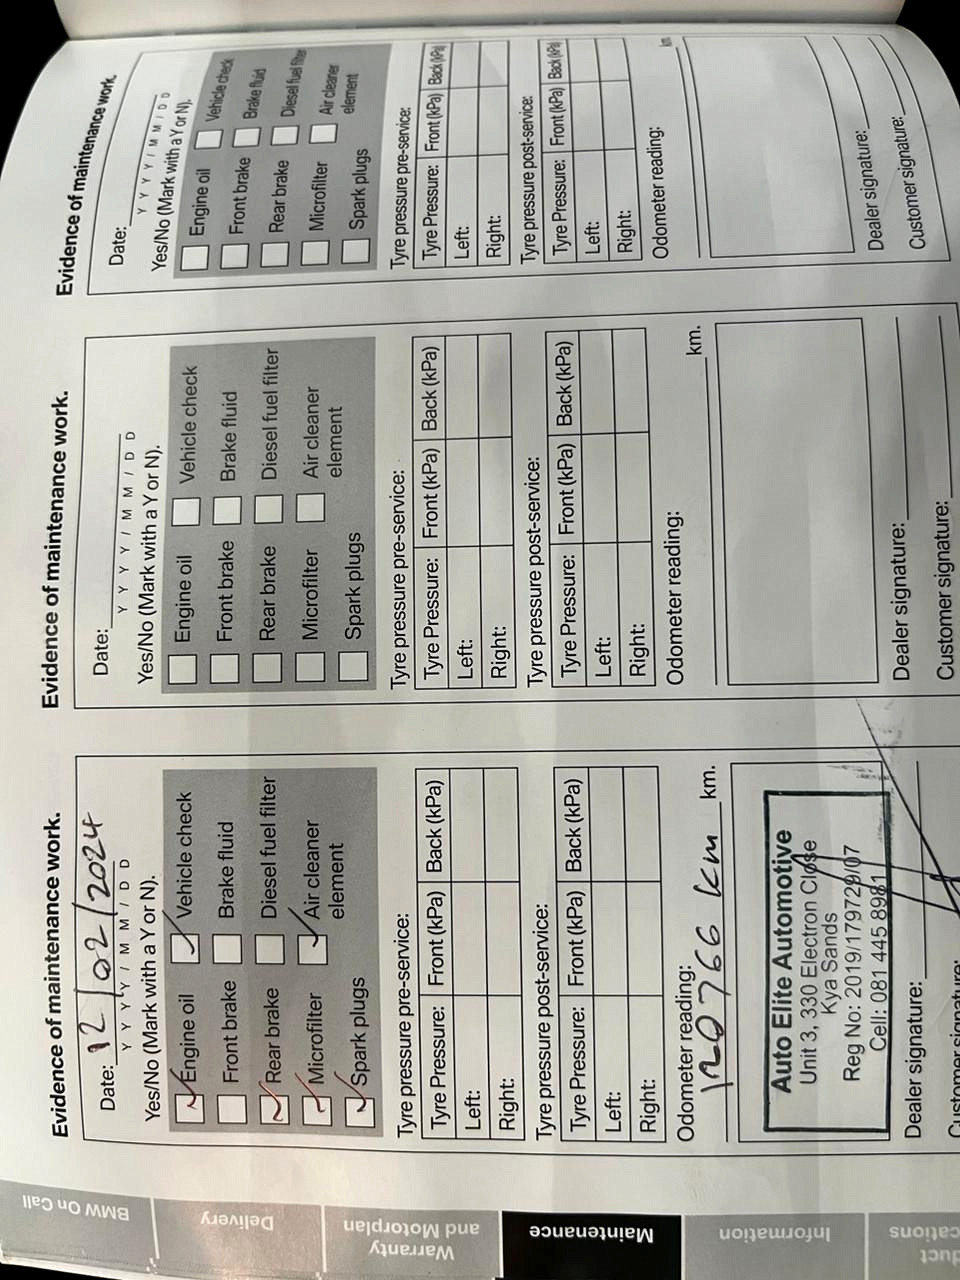 Evidence of maintenance work.
Date: 12/02/2024
Y Y Y Y / M M / D D
Yes/No (Mark with a Y or N).
✓ Engine oil ✓ Vehicle check
Front brake Brake fluid
✓ Rear brake Diesel fuel filter
✓ Microfilter ✓ Air cleaner
element
✓ Spark plugs
Tyre pressure pre-service:
Tyre Pressure: Front (kPa) Back (kPa)
Left:
Right:
Tyre pressure post-service:
Tyre Pressure: Front (kPa) Back (kPa)
Left:
Right:
Odometer reading:
120766 km km.
Auto Elite Automotive
Unit 3, 330 Electron Close
Kya Sands
Reg No: 2019/179729/07
Cell: 081 445 8981
Dealer signature:
Customer signature:
Evidence of maintenance work.
Date:
Y Y Y Y / M M / D D
Yes/No (Mark with a Y or N).
Engine oil Vehicle check
Front brake Brake fluid
Rear brake Diesel fuel filter
Microfilter Air cleaner
element
Spark plugs
Tyre pressure pre-service:
Tyre Pressure: Front (kPa) Back (kPa)
Left:
Right:
Tyre pressure post-service:
Tyre Pressure: Front (kPa) Back (kPa)
Left:
Right:
Odometer reading:
km.
Dealer signature:
Customer signature:
Evidence of maintenance work.
Date:
Y Y Y Y / M M / D D
Yes/No (Mark with a Y or N).
Engine oil Vehicle check
Front brake Brake fluid
Rear brake Diesel fuel filter
Microfilter Air cleaner
element
Spark plugs
Tyre pressure pre-service:
Tyre Pressure: Front (kPa) Back (kPa)
Left:
Right:
Tyre pressure post-service:
Tyre Pressure: Front (kPa) Back (kPa)
Left:
Right:
Odometer reading:
km.
Dealer signature:
Customer signature:
BMW On Call
Delivery
Warranty
and Motorplan
Maintenance
Information